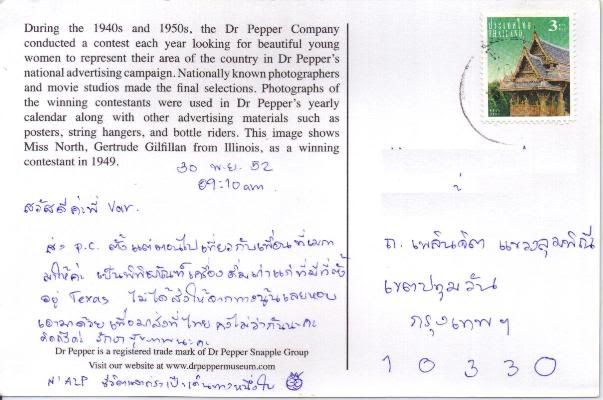 During the 1940s and 1950s, the Dr Pepper Company
conducted a contest each year looking for beautiful young
women to represent their area of the country in Dr Pepper's
national advertising campaign. Nationally known photographers
and movie studios made the final selections. Photographs of
the winning contestants were used in Dr Pepper's yearly
calendar along with other advertising materials such as
posters, string hangers, and bottle riders. This image shows
Miss North, Gertrude Gilfillan from Illinois, as a winning
contestant in 1949.
30 พ.ย. 52
09:10am
สวัสดีค่ะพี่ Var.
ส่ง P.C. ตั้งแต่ตอนไปเที่ยวกับเพื่อนที่เมกา
มาให้ค่ะ เป็นพิพิธภัณฑ์เครื่องดื่มเก่าแก่ที่มีที่ตั้ง
อยู่ Texas ไม่ได้ส่งให้จากทางนู้นเลยหอบ
เอามาด้วย เพื่อมาส่งที่ไทย คงไม่ว่ากันนะคะ
คิดถึงค่ะ รักษาสุขภาพนะคะ
Dr Pepper is a registered trade mark of Dr Pepper Snapple Group
Visit our website at www.drpeppermuseum.com
ประเทศไทย 3
THAILAND
ถ. เพลินจิต แขวงลุมพินี
เขตปทุมวัน
กรุงเทพฯ
10330